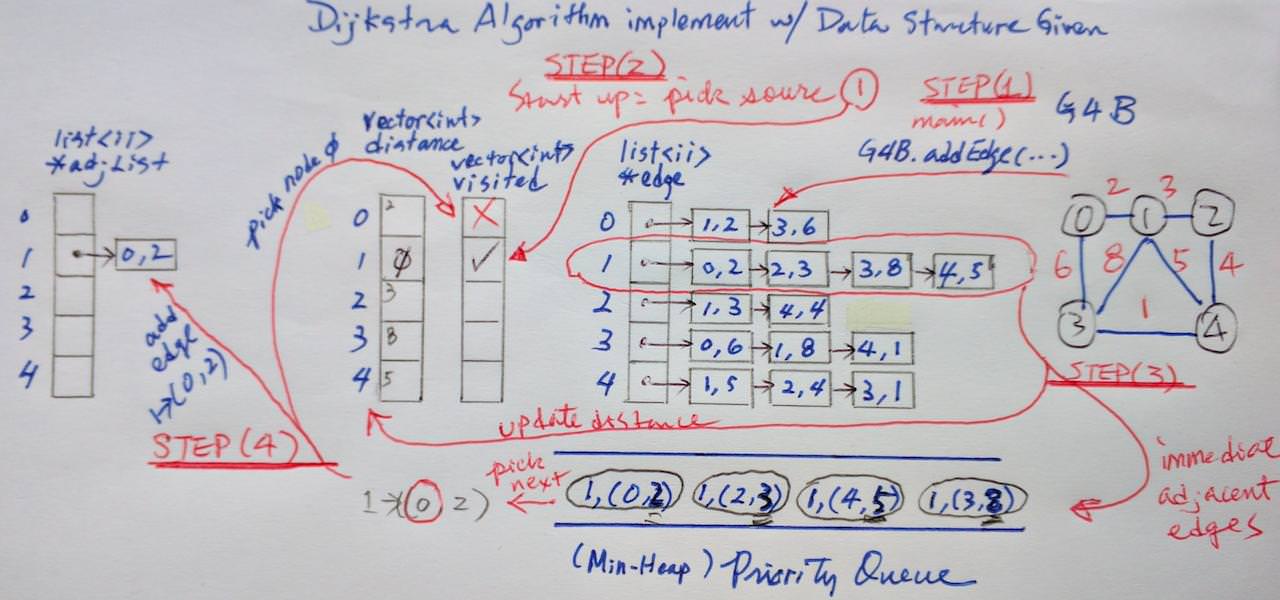 Dijkstra Algorithm implement w/ Data Structure Given
STEP(2)
Start up = pick soure 1
STEP(1)
main()
G4B
G4B.addEdge(...)
list<ii>
*adjList
0
1
2
3
4
0,2
add
edge
1→(0,2)
STEP(4)
pick node ϕ
vector<int>
distance
0 2
1 ϕ
2 3
3 8
4 5
vector<int>
visited
X
✓
list<ii>
*edge
0 → 1,2 → 3,6
1 → 0,2 → 2,3 → 3,8 → 4,5
2 → 1,3 → 4,4
3 → 0,6 → 1,8 → 4,1
4 → 1,5 → 2,4 → 3,1
2 3
0 1 2
6 8 5 4
1
3 4
STEP(3)
update distance
immediae
adjacent
edges
pick
next
1→(0 2)
1,(0,2) 1,(2,3) 1,(4,5) 1,(3,8)
(Min-Heap) Priority Queue